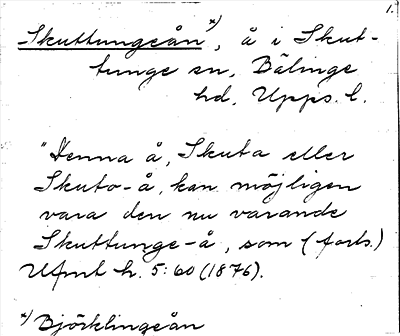 1.
Skuttungeån *), å i Skut-
tunge sn, Bälinge
hd, Upps. l.
"Denna å, Skuta eller
Skuto-å, kan möjligen
vara den nu varande
Skuttunge-å, som (forts.)
Ufmt h. 5:60 (1876).
*) Björklingeån